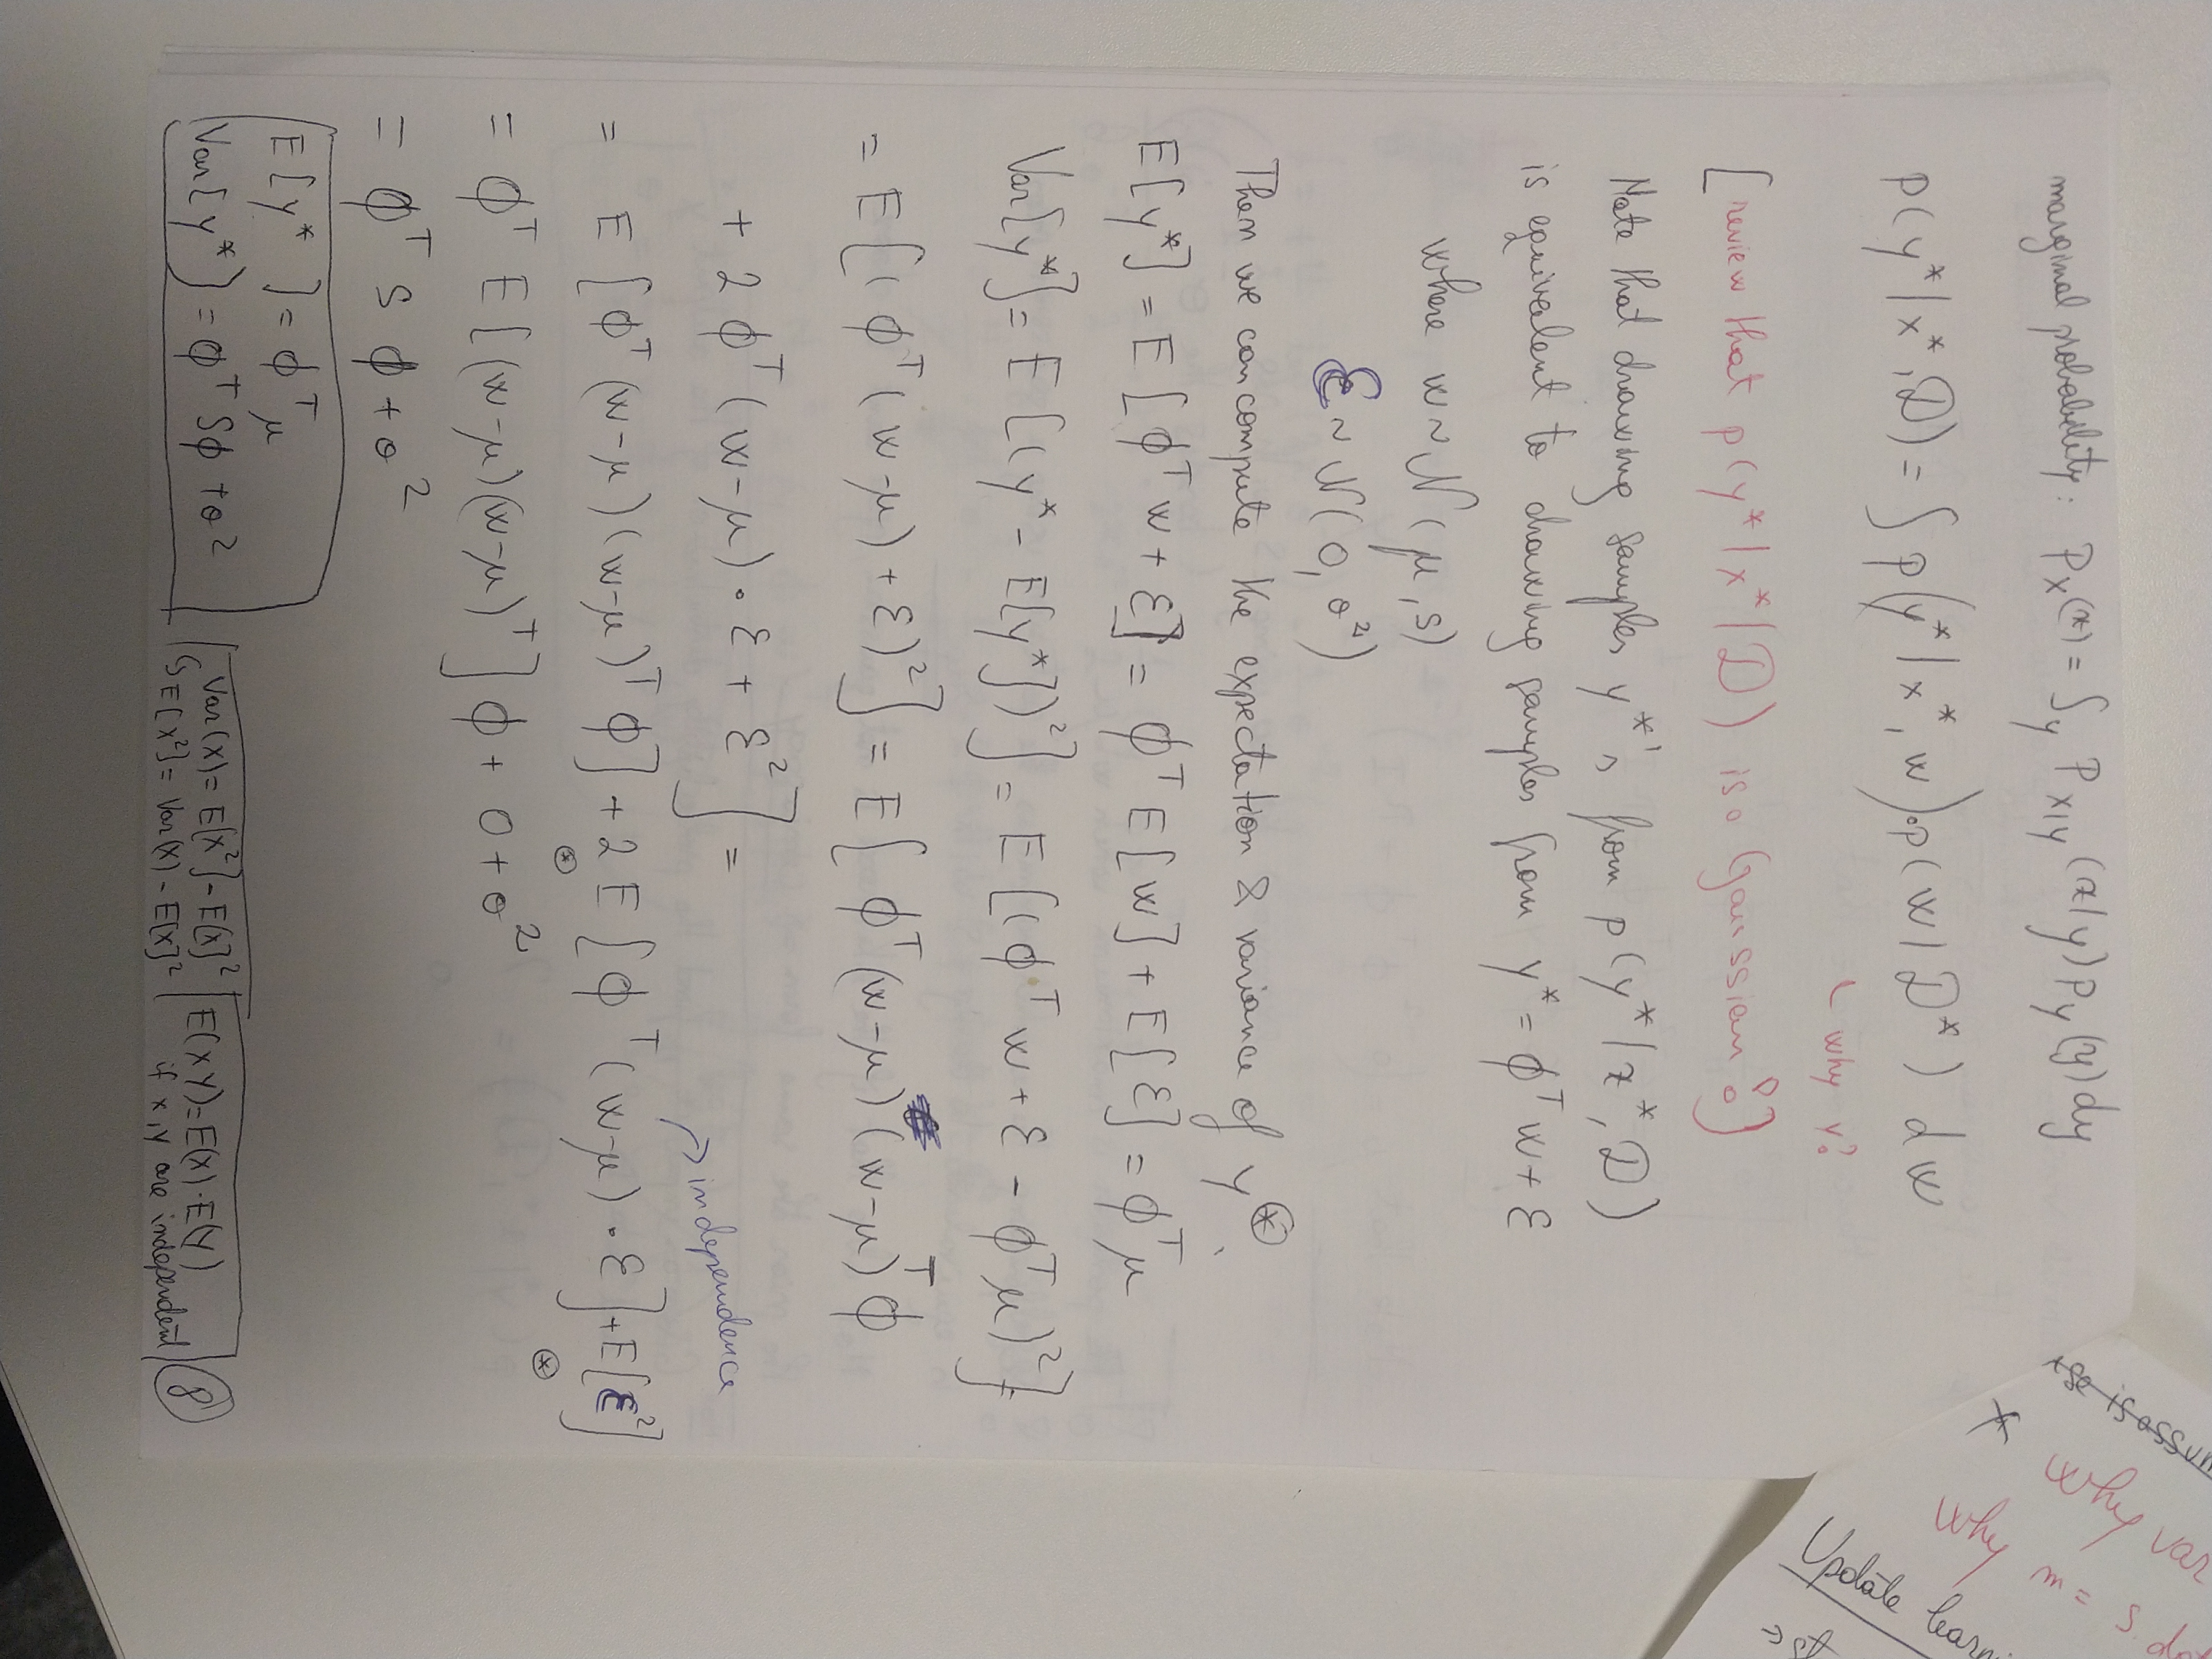 marginal probability: P_X(x) = ∫_y P_X|Y (x|y) p_Y (y) dy
P(y*|x*, D) = ∫ p(y*|x*, w)·p(w|D*) dw
why Y?
[review that p(y*|x*|D) is a Gaussian?]
Note that drawing samples y*'s from p(y*|x*, D)
is equivalent to drawing samples from y* = ϕ^T w + ε
where w ~ N(μ, S)
ε ~ N(0, σ²)
Then we can compute the expectation & variance of y^⊛.
E[y*] = E[ϕ^T w + ε] = ϕ^T E[w] + E[ε] = ϕ^T μ
Var[y*] = E[(y* - E[y*])²] = E[(ϕ^T w + ε - ϕ^T μ)²] =
= E[(ϕ^T(w-μ) + ε)²] = E[ϕ^T(w-μ)(w-μ)^T ϕ
+ 2ϕ^T(w-μ)·ε + ε²] =
→ independence
= E[ϕ^T(w-μ)(w-μ)^T ϕ] + 2E[ϕ^T(w-μ)·ε] + E[ε²]
⊛ ⊛
= ϕ^T E[(w-μ)(w-μ)^T]ϕ + 0 + σ²
= ϕ^T S ϕ + σ²
E[y*] = ϕ^T μ
Var[y*] = ϕ^T Sϕ + σ²
Var(X) = E[X²] - E[X]²
↳ E[X²] = Var(X) - E[X]²
E(XY) = E(X)·E(Y)
if x, y are independent
8
* why var
why m = S
Update learni